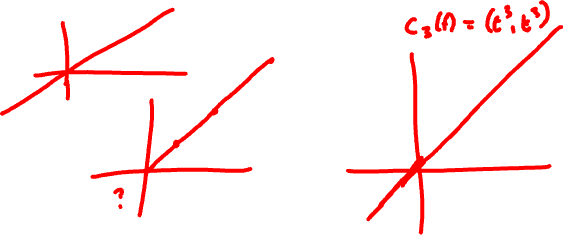 C₃(t) = (t³, t³)
?